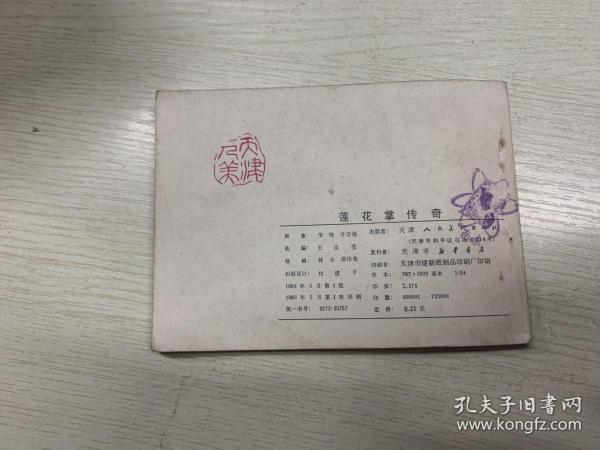 天津
人美
莲花掌传奇
原著：李栋 许宗强
改编：王良莹
封面设计：刘建平
1983年5月第1版
1983年5月第1次印刷
统一书号：8073·30757
出版者：天津人民美术出版社
（天津市和平区马场道
发行者：天津市新华书店
印刷者：天津市建新纸制品印刷厂印刷
开本：787×1092毫米 1/64
印张：2.375
印数：000001—735000
定价：0.21元
孔夫子旧书网
www.kongfz.com